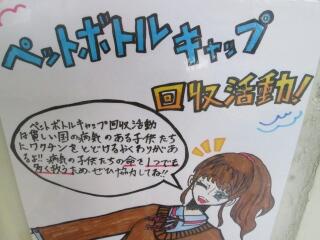 ペットボトルキャップ
回収活動!
ペットボトルキャップ回収活動
は貧しい国の病気のある子供たち
にワクチンをとどけるやくわりがあ
るよ!! 病気の子供たちの命を1つでも
多く救うため、ぜひ協力してね!!